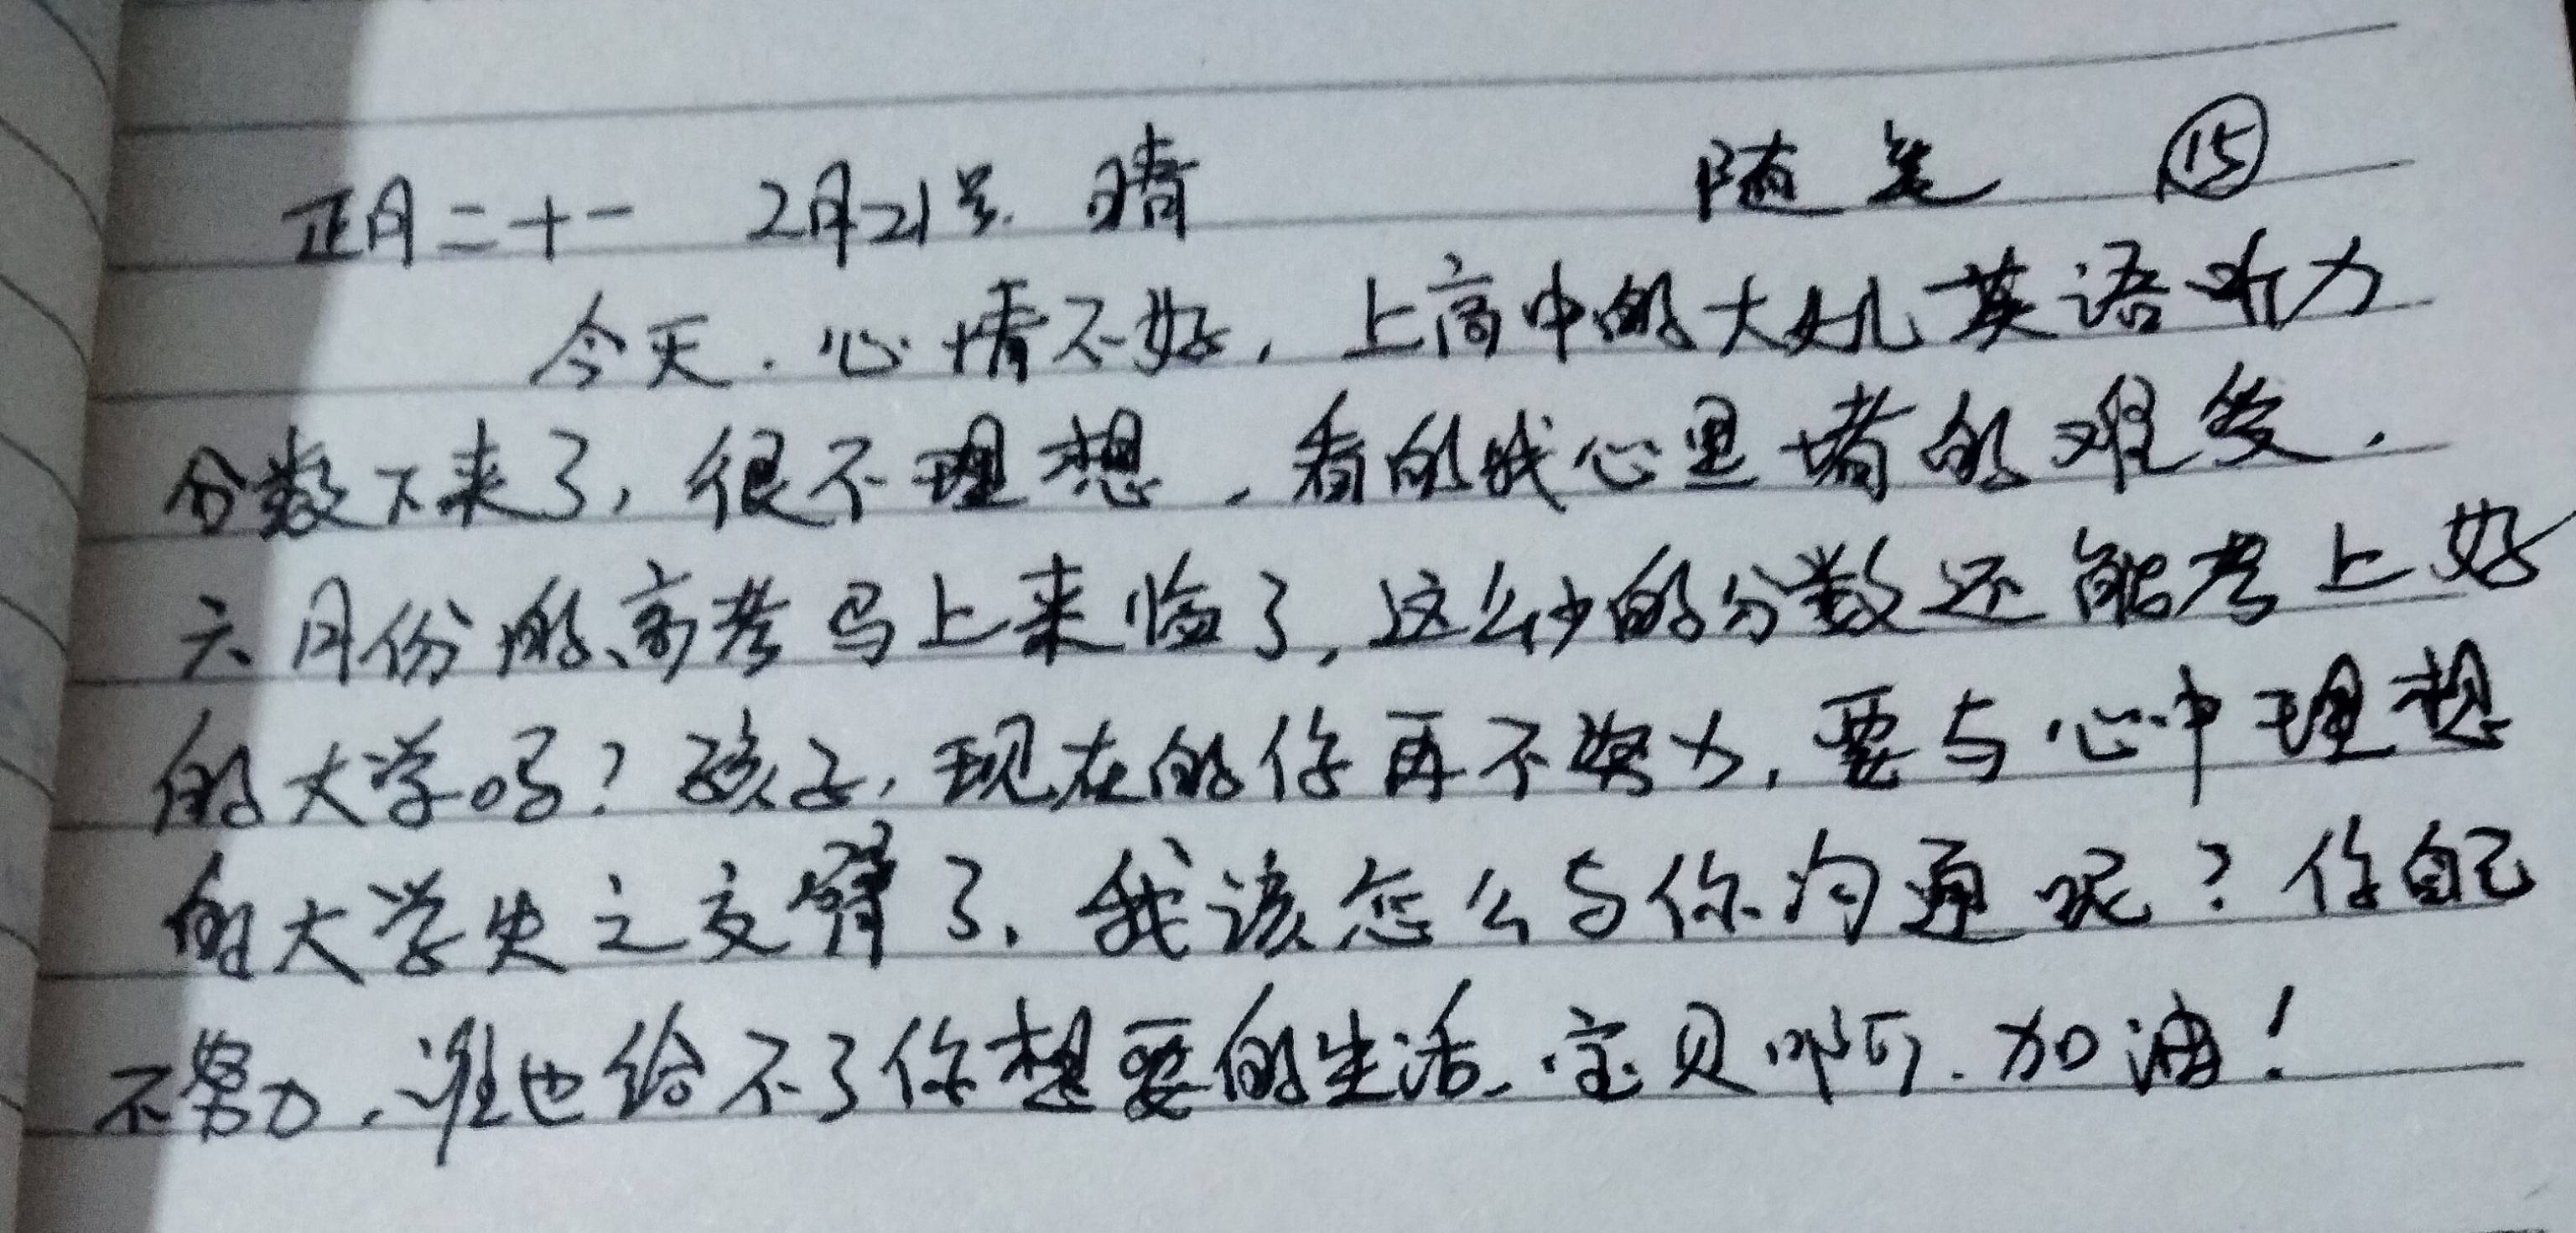 正月二十一 2月21号. 晴 随笔 ⑮
今天.心情不好，上高中的大女儿英语听力
分数下来了，很不理想，看的我心里堵的难受.
六月份的高考马上来临了，这么少的分数还能考上好
的大学吗？孩子，现在的你再不努力，要与心中理想
的大学失之交臂了、我该怎么与你沟通呢？你自己
不努力，谁也给不了你想要的生活、宝贝啊.加油！